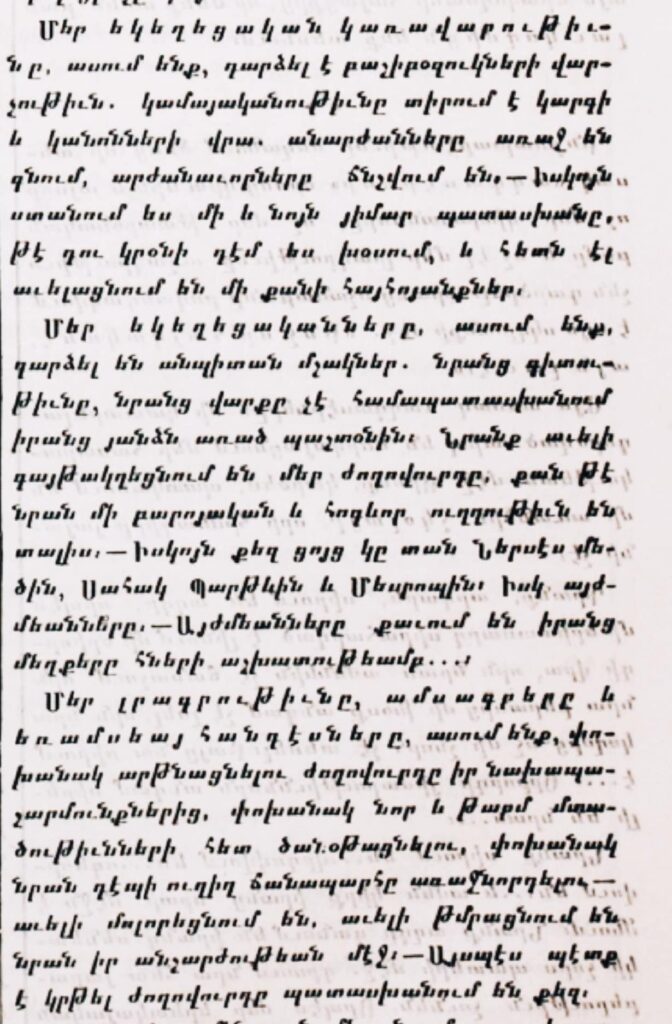 Մեր եկեղեցական կառավարութիւ-
նը, ասում ենք, դարձել է բաշիբօզուկների վար-
չութիւն. կամայականութիւնը տիրում է կարգի
և կանոնների վրա. անարժանները առաջ են
գնում, արժանաւորները ճնշվում են.—Իսկոյն
ստանում ես մի և նոյն յիմար պատասխանը,
թէ դու կրօնի դէմ ես խօսում, և հետն էլ
աւելացնում են մի քանի հայհոյանքներ։
Մեր եկեղեցականները, ասում ենք,
դարձել են անպիտան մշակներ. նրանց գիտու-
թիւնը, նրանց վարքը չէ համապատասխանում
իրանց յանձն առած պաշտօնին։ Նրանք աւելի
գայթակղեցնում են մեր ժողովուրդը, քան թէ
նրան մի բարոյական և հոգևոր ուղղութիւն են
տալիս։—Իսկոյն քեզ ցոյց կը տան Ներսէս մե-
ծին, Սահակ Պարթևին և Մեսրոպին։ Իսկ այժ-
մեանները։—Այժմեանները քաւում են իրանց
մեղքերը հների աշխատութեամբ...։
Մեր լրագրութիւնը, ամսագրերը և
եռամսեայ հանդէսները, ասում ենք, փո-
խանակ արթնացնելու ժողովուրդը իր նախապա-
շարմունքներից, փոխանակ նոր և թարմ մտա-
ծութիւնների հետ ծանօթացնելու, փոխանակ
նրան դէպի ուղիղ ճանապարհը առաջնորդելու—
աւելի մոլորեցնում են, աւելի թմրացնում են
նրան իր անշարժութեան մէջ։—Այսպէս պէտք
է կրթել ժողովուրդը պատասխանում են քեզ։